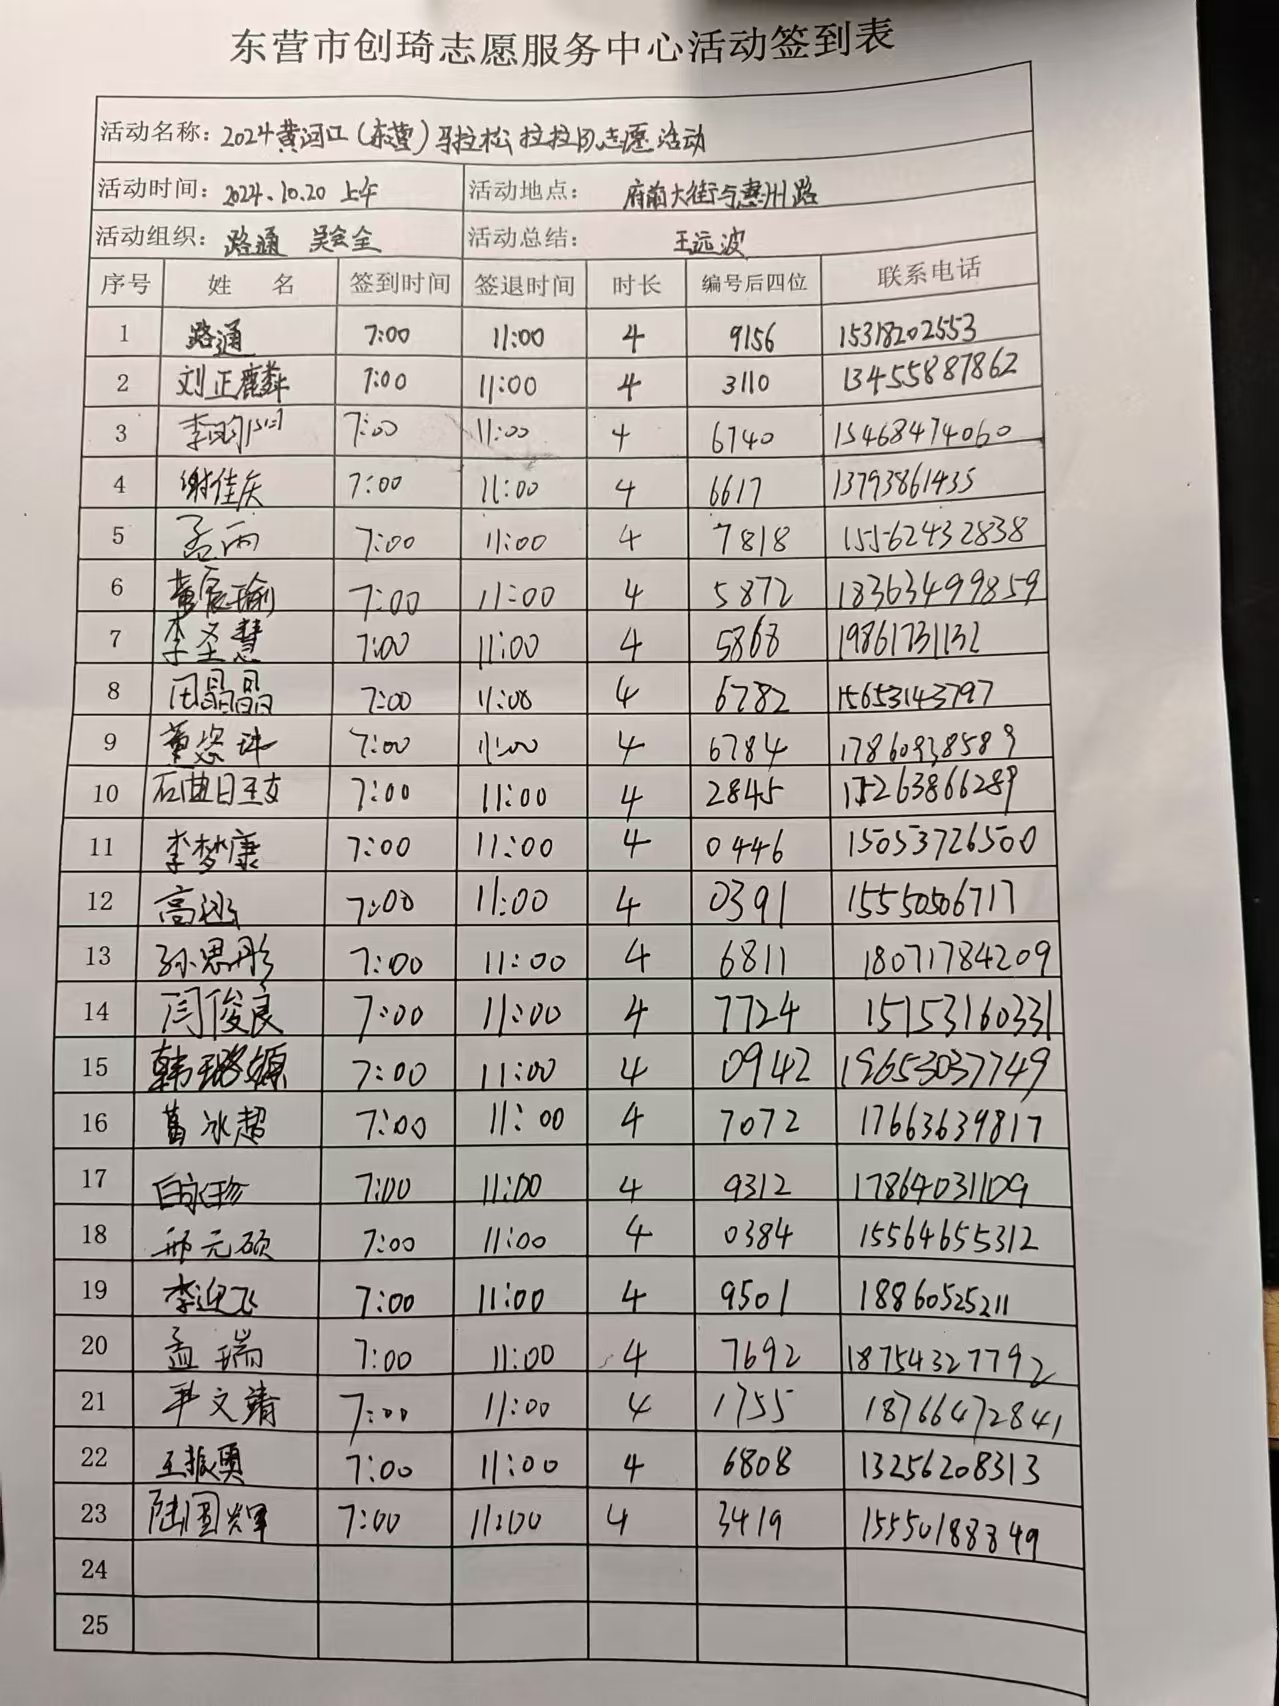 东营市创琦志愿服务中心活动签到表
活动名称：2024黄河口（东营）马拉松拉拉队志愿活动
活动时间：2024.10.20 上午 活动地点：府前大街与惠州路
活动组织：路通 吴会全 活动总结：王远波
序号 姓 名 签到时间 签退时间 时长 编号后四位 联系电话
1 路通 7:00 11:00 4 9156 15318202553
2 刘正麟 7:00 11:00 4 3110 13455887862
3 李 7:00 11:00 4 6740 15468474060
4 谢佳庆 7:00 11:00 4 6617 13793861435
5 孟雨 7:00 11:00 4 7818 15562432838
6 黄宸瑜 7:00 11:00 4 5872 18363499859
7 李圣慧 7:00 11:00 4 5868 19861731132
8 田晶晶 7:00 11:00 4 6782 15653143797
9 董姿玮 7:00 11:00 4 6784 17860938589
10 石曲日玉女 7:00 11:00 4 2845 15263866289
11 李梦康 7:00 11:00 4 0446 15053726500
12 高 7:00 11:00 4 0391 15550506717
13 孙思彤 7:00 11:00 4 6811 18071784209
14 闫俊良 7:00 11:00 4 7724 15153160331
15 韩璐嫄 7:00 11:00 4 0942 19653037749
16 葛冰超 7:00 11:00 4 7072 17663639817
17 白永珍 7:00 11:00 4 9312 17864031109
18 邢元硕 7:00 11:00 4 0384 15564655312
19 李迎飞 7:00 11:00 4 9501 18860525211
20 孟瑞 7:00 11:00 4 7692 18754327792
21 尹文靖 7:00 11:00 4 1755 18766472841
22 王振勇 7:00 11:00 4 6808 13256208313
23 陆国辉 7:00 11:00 4 3419 15550188349
24
25